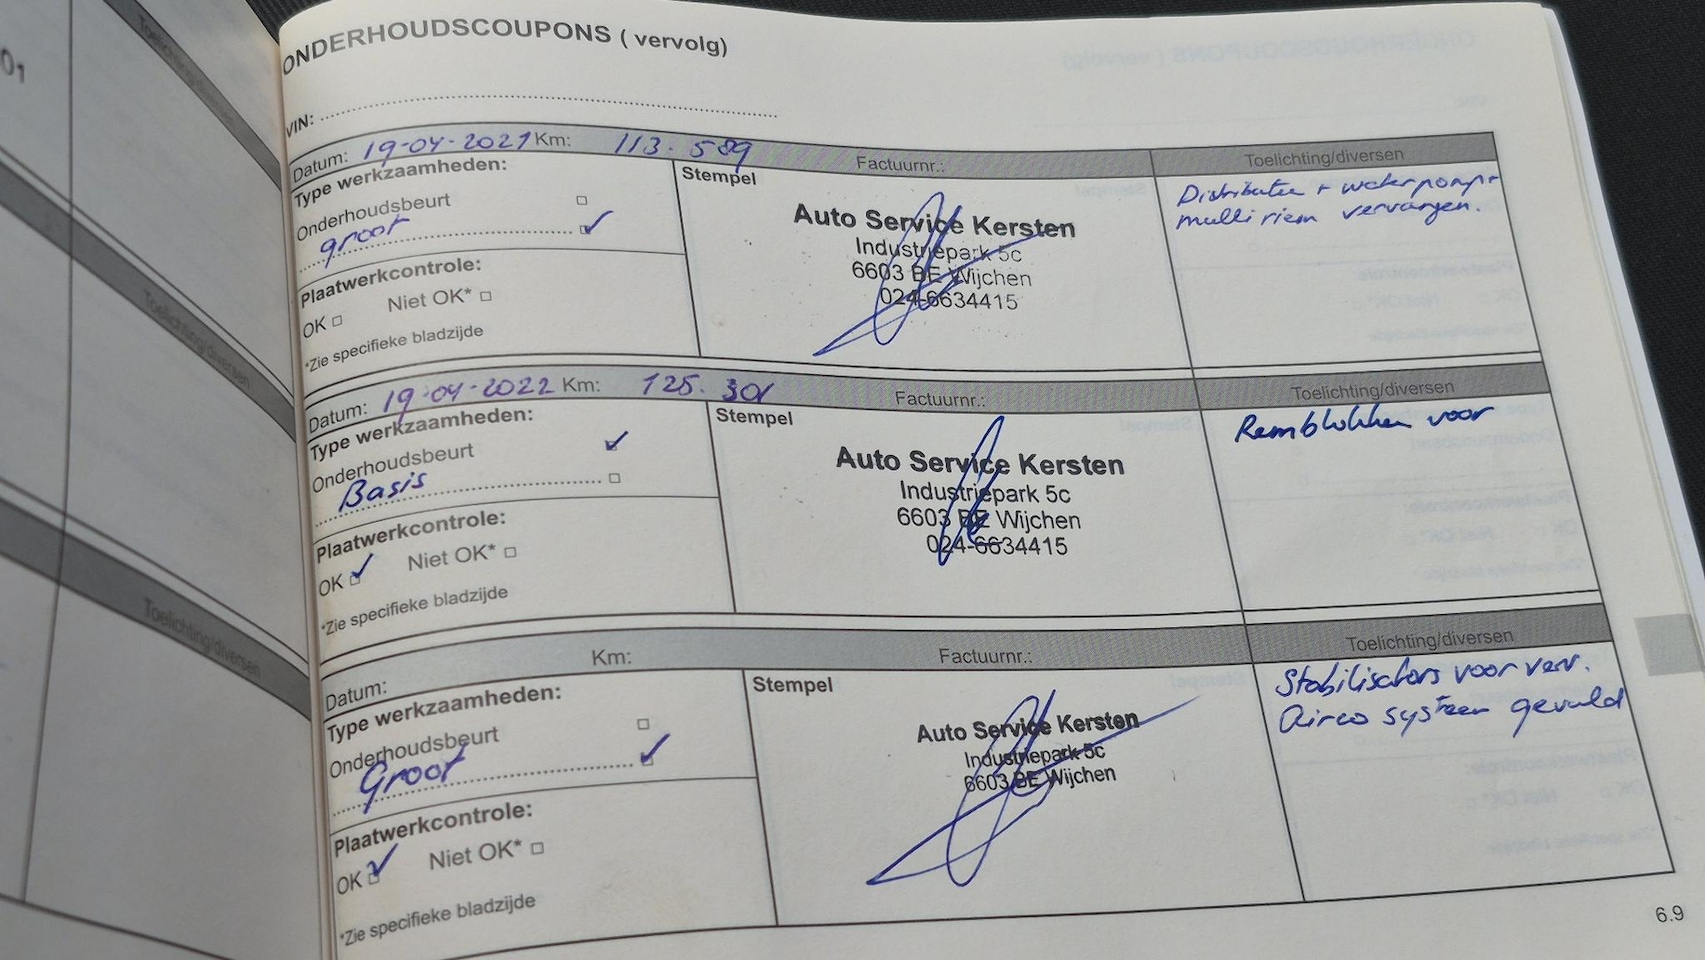 01
Toelichting/diversen
Toelichting/diversen
Toelichting/diversen
ONDERHOUDSCOUPONS ( vervolg)
VIN:
Datum: 19-04-2021 Km: 113.589 Factuurnr.: Toelichting/diversen
Type werkzaamheden:
Stempel
Onderhoudsbeurt
groot
Auto Service Kersten
Industriepark 5c
6603 BE Wijchen
024-6634415
Distributie + waterpomp+
multiriem vervangen.
Plaatwerkcontrole:
OK Niet OK*
*Zie specifieke bladzijde
Datum: 19-04-2022 Km: 125.301 Factuurnr.: Toelichting/diversen
Type werkzaamheden:
Stempel
Onderhoudsbeurt
Basis
Auto Service Kersten
Industriepark 5c
6603 BE Wijchen
024-6634415
Remblokken voor
Plaatwerkcontrole:
OK Niet OK*
*Zie specifieke bladzijde
Datum: Km: Factuurnr.: Toelichting/diversen
Type werkzaamheden:
Stempel
Onderhoudsbeurt
Groot
Auto Service Kersten
Industriepark 5c
6603 BE Wijchen
Stabilisators voor verv.
Airco systeem gevuld
Plaatwerkcontrole:
OK Niet OK*
*Zie specifieke bladzijde
6.9